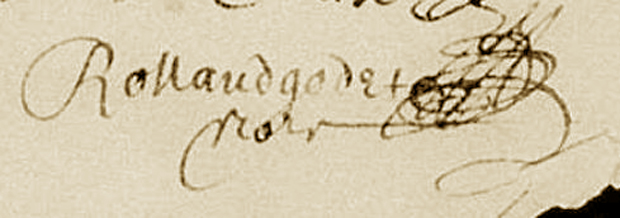 Rollandgodet
nore